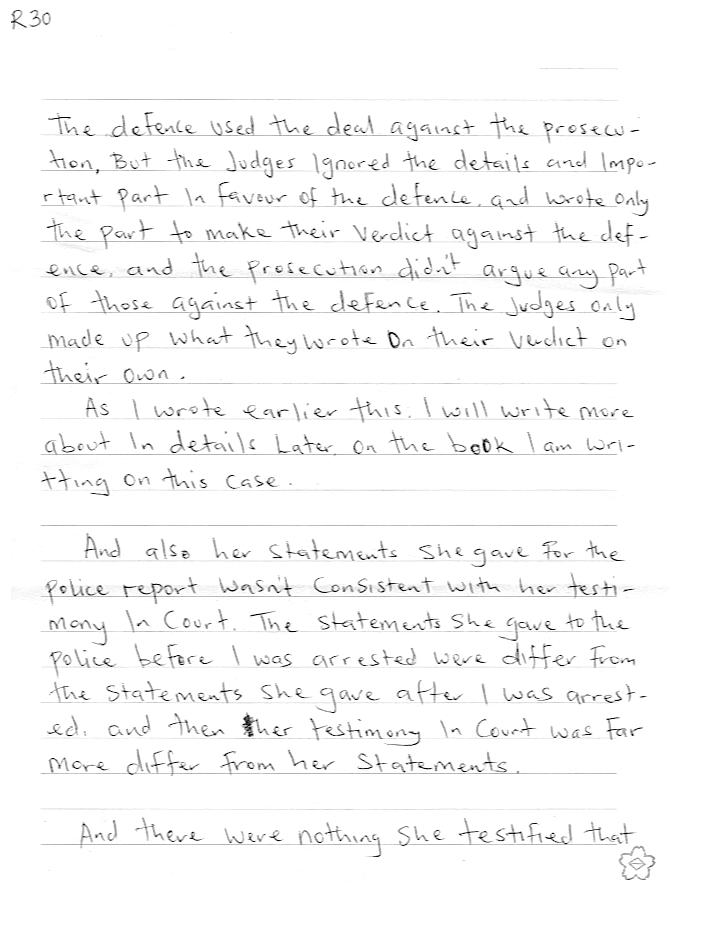 R30
The defence used the deal against the prosecu-
tion, But the Judges Ignored the details and Impo-
rtant part In favour of the defence, and wrote only
the part to make their verdict against the def-
ence, and the prosecution didn't argue any part
of those against the defence. The Judges only
made up what they wrote On their verdict on
their own.
As I wrote earlier this. I will write more
about In details Later, on the book I am wri-
tting on this case.
And also her statements she gave For the
police report wasn't consistent with her testi-
mony In Court. The statements she gave to the
police before I was arrested were differ from
the statements she gave after I was arrest-
ed, and then her testimony In Court was far
more differ from her statements.
And there were nothing she testified that